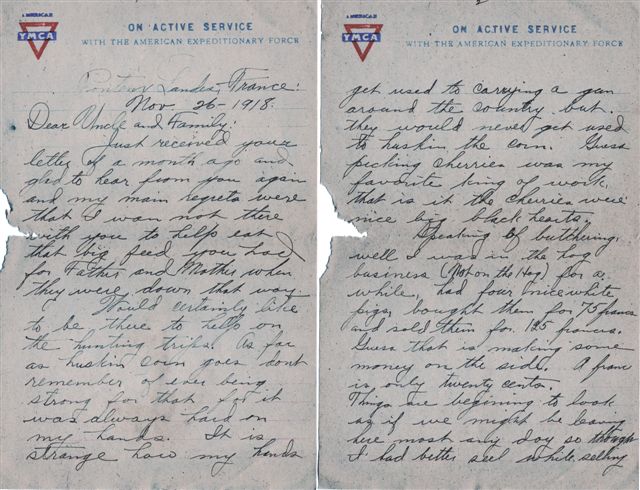 AMERICAN
YMCA
ON ACTIVE SERVICE
WITH THE AMERICAN EXPEDITIONARY FORCE
Pontenx Landes, France.
Nov. 26-1918.
Dear Uncle and Family:
Just received your
letter of a month ago and
glad to hear from you again
and my main regrets were
that I was not there
with you to help eat
that big feed you had
for Father and Mother when
they were down that way.
Would certainly like
to be there to help on
the hunting trips. As far
as huskin corn goes dont
remember of ever being
strong for that for it
was always hard on
my hands. It is
strange how my hands
2
AMERICAN
YMCA
ON ACTIVE SERVICE
WITH THE AMERICAN EXPEDITIONARY FORCE
get used to carrying a gun
around the country but
they would never get used
to huskin the corn. Guess
picking cherries was my
favorite king of work.
that is if the cherries were
nice big black hearts.
Speaking of butthering,
well I was in the hog
business (Not on the Hog) for a
while, had four nice white
pigs, bought them for 75 francs
and sold them for 125 francs.
Guess that is making some
money on the side. A franc
is only twenty cents.
Things are begining to look
as if we might be leaving
here most any day so though
I had better sell while selling